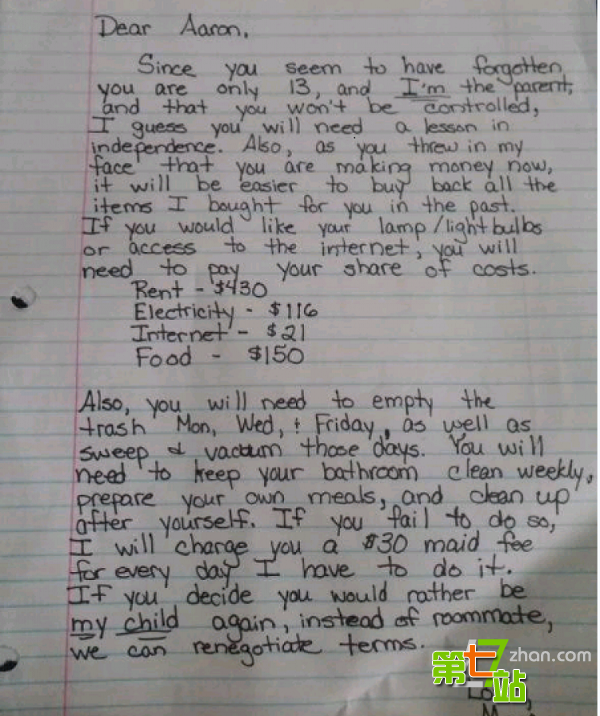 Dear Aaron,
Since you seem to have forgotten
you are only 13, and I'm the parent,
and that you won't be controlled,
I guess you will need a lesson in
independence. Also, as you threw in my
face that you are making money now,
it will be easier to buy back all the
items I bought for you in the past.
If you would like your lamp/lightbulbs
or access to the internet, you will
need to pay your share of costs.
Rent - $430
Electricity - $116
Internet - $21
Food - $150
Also, you will need to empty the
trash Mon, Wed, & Friday, as well as
sweep & vacuum those days. You will
need to keep your bathroom clean weekly,
prepare your own meals, and clean up
after yourself. If you fail to do so,
I will charge you a $30 maid fee
for every day I have to do it.
If you decide you would rather be
my child again, instead of roommate,
we can renegotiate terms.
第七站
7zhan.com